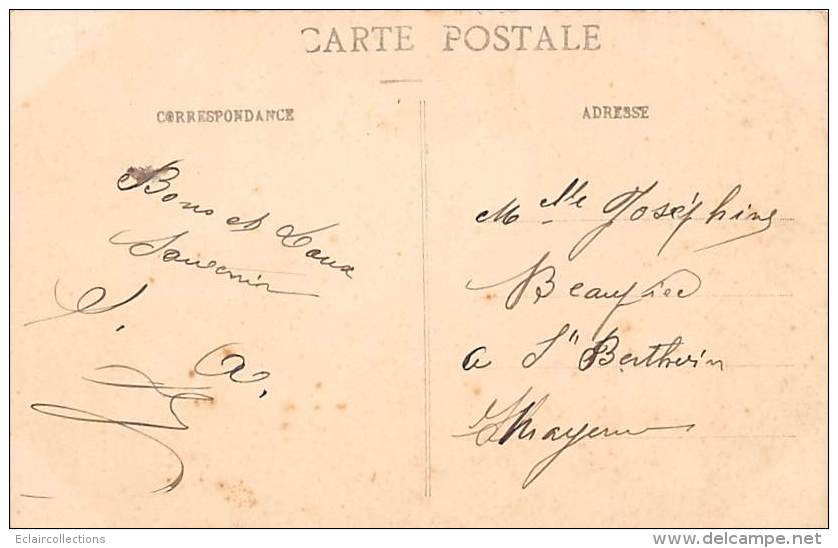 CARTE POSTALE
CORRESPONDANCE
Bons et Doux
Souvenir
ADRESSE
Melle Joséphine
à St Berthevin
Mayenne
Eclaircollections
delcampe.net